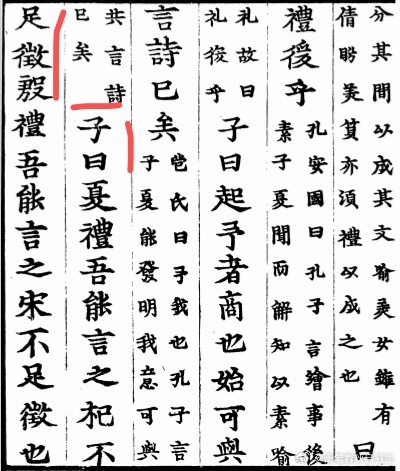 分其間以成其文喻美女雖有
倩盼美質亦須禮以成之也
曰
禮後乎
孔安國曰孔子言繪事後
素子夏聞而解知以素喻
礼故曰
礼後乎
子曰起予者商也始可與
言詩已矣
苞氏曰予我也孔子言
子夏能發明我意可與
共言詩
已矣
子曰夏禮吾能言之杞不
足徵殷禮吾能言之宋不足徵也